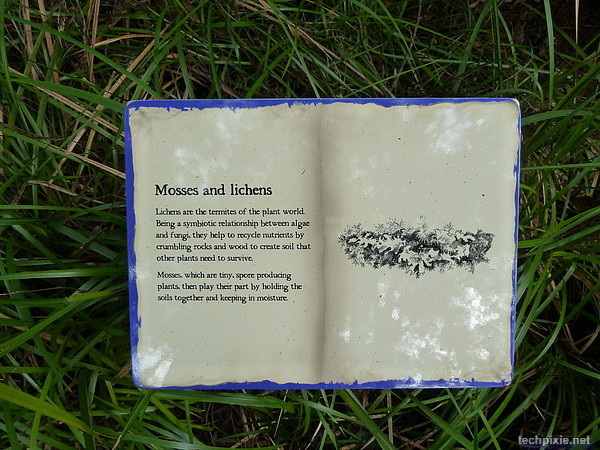 Mosses and lichens
Lichens are the termites of the plant world.
Being a symbiotic relationship between algae
and fungi, they help to recycle nutrients by
crumbling rocks and wood to create soil that
other plants need to survive.
Mosses, which are tiny, spore producing
plants, then play their part by holding the
soils together and keeping in moisture.
techpixie.net